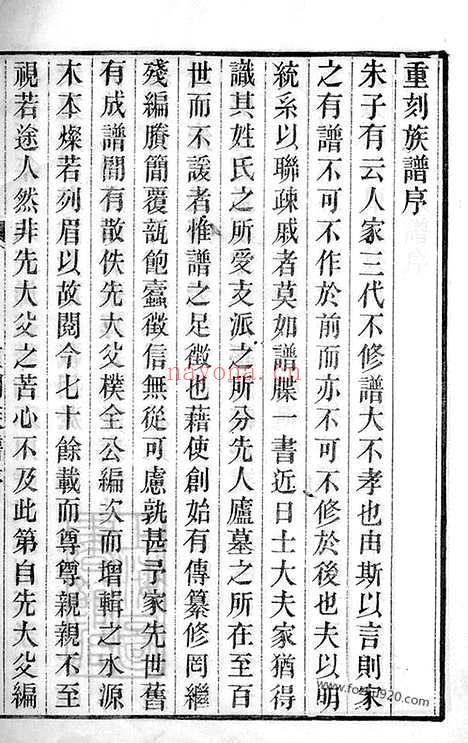 重刻族譜序
朱子有云人家三代不修譜大不孝也由斯以言則家
之有譜不可不作於前而亦不可不修於後也夫以明
統系以聯疎戚者莫如譜牒一書近日士大夫家猶得
識其姓氏之所受支派之所分先人廬墓之所在至百
世而不諼者惟譜之足徵也藉使創始有傳纂修罔繼
殘編賸簡覆瓿飽蠹徵信無從可慮孰甚予家先世舊
有成譜間有散佚先大父樸全公編次而增輯之水源
木本燦若列眉以故閱今七十餘載而尊尊親親不至
視若途人然非先大父之苦心不及此第自先大父編
nayona.cn
www.foxue920.com